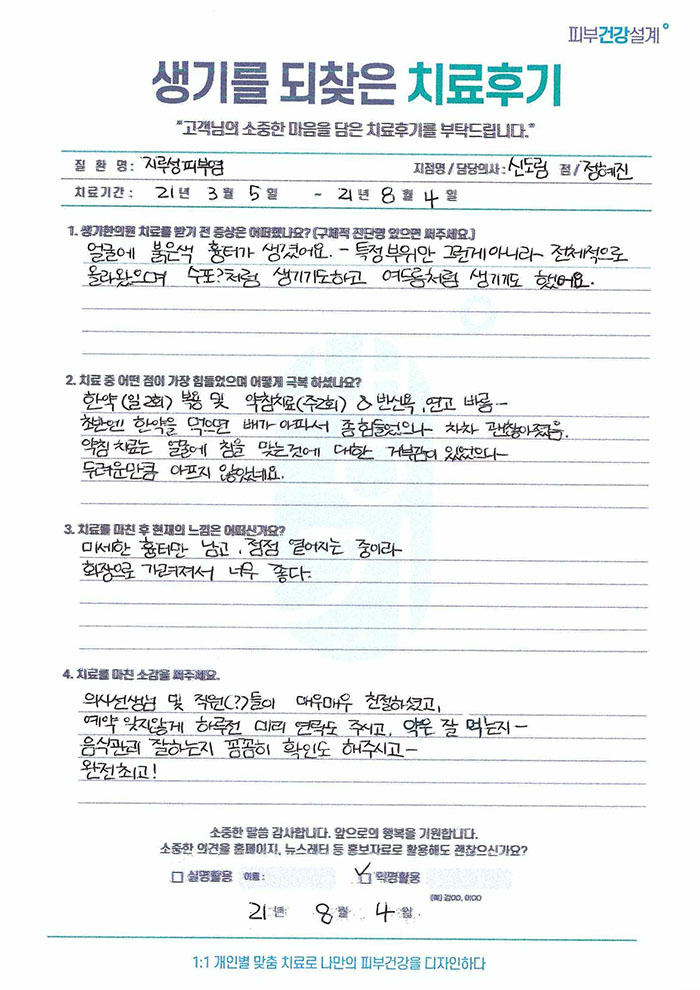 피부건강설계
생기를 되찾은 치료후기
"고객님의 소중한 마음을 담은 치료후기를 부탁드립니다."
질 환 명 : 지루성피부염 지점명 / 담당의사 : 신도림 점 / 정혜진
치료기간 : 21년 3월 5일 ~ 21년 8월 4일
1. 생기한의원 치료를 받기 전 증상은 어떠했나요? (구체적 진단명 있으면 써주세요.)
얼굴에 붉은색 흉터가 생겼어요. - 특정부위만 그런게 아니라 전체적으로
올라왔으며 수포?처럼 생기기도하고 여드름처럼 생기기도 했어요.
2. 치료 중 어떤 점이 가장 힘들었으며 어떻게 극복 하셨나요?
한약(일2회) 복용 및 약침치료(주2회) & 반신욕, 연고 바름-
첨반엔 한약을 먹으면 배가 아파서 좀 힘들었으나 차차 괜찮아졌음.
약침 치료는 얼굴에 침을 맞는것에 대한 거부감이 있었으나
두려운만큼 아프지 않았네요.
3. 치료를 마친 후 현재의 느낌은 어떠신가요?
미세한 흉터만 남고, 점점 옅어지는 중이라
화장으로 가려져서 너무 좋다.
4. 치료를 마친 소감을 써주세요.
의사선생님 및 직원(??)들이 매우매우 친절하셨고,
예약 잊지않게 하루전 미리 연락도 주시고, 약은 잘 먹는지-
음식관리 잘하는지 꼼꼼히 확인도 해주시고-
완전최고!
소중한 말씀 감사합니다. 앞으로의 행복을 기원합니다.
소중한 의견을 홈페이지, 뉴스레터 등 홍보자료로 활용해도 괜찮으신가요?
실명활용 이름 : 익명활용
(예) 김OO, 이OO
21년 8월 4일
1:1 개인별 맞춤 치료로 나만의 피부건강을 디자인하다